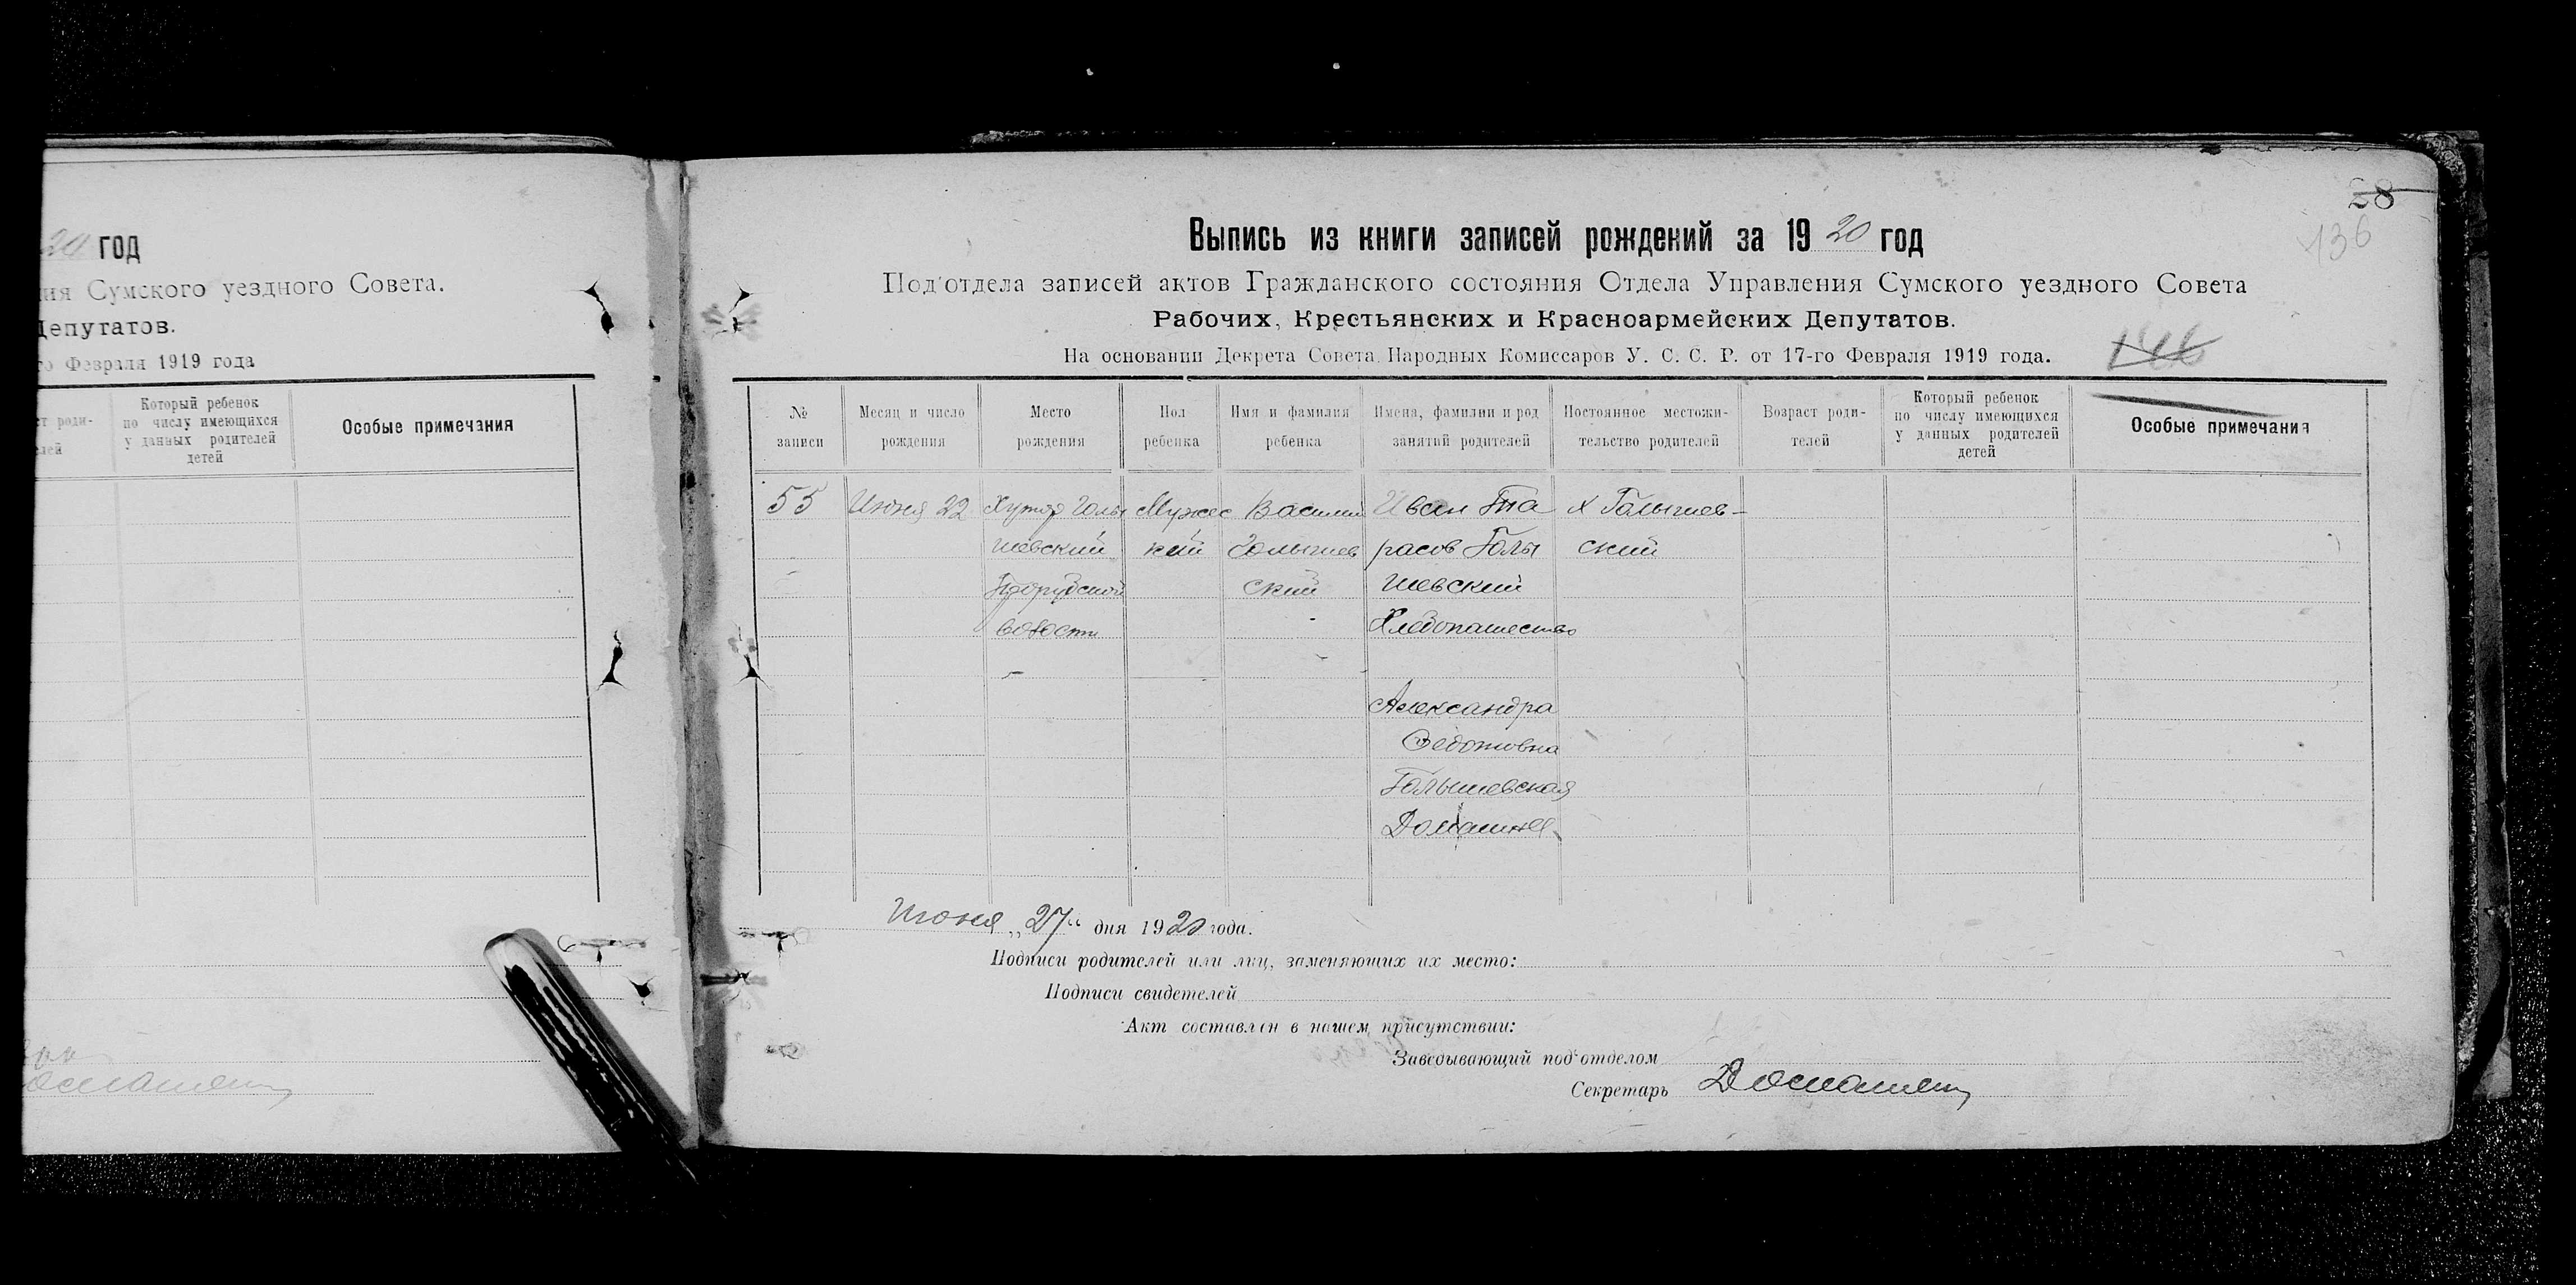 20 год
ия Сумского уездного Совета.
Депутатов.
го Февраля 1919 года
ст роди-
елей
Который ребенок
по числу имеющихся
у данных родителей
детей
Особые примечания
28
136
146
Выпись из книги записей рождений за 1920 год
Под'отдела записей актов Гражданского состояния Отдела Управления Сумского уездного Совета
Рабочих, Крестьянских и Красноармейских Депутатов.
На основании Декрета Совета Народных Комиссаров У. С. С. Р. от 17-го Февраля 1919 года.
№
записи
Месяц и число
рождения
Место
рождения
Пол
ребенка
Имя и фамилия
ребенка
Имена, фамилии и род
занятий родителей
Постоянное местожи-
тельство родителей
Возраст роди-
телей
Который ребенок
по числу имеющихся
у данных родителей
детей
Особые примечания
55
Июня 22
Хутор Голы
шевский
волости
Мужес
кий
Василий
Голышев
ский
Иван Та
расов Голы
шевский
Хлебопашество
Александра
Федотовна
Голышевская
Домашнее
х Голышев-
ский
Июня „27" дня 1920 года.
Подписи родителей или лиц, заменяющих их место:
Подписи свидетелей
Акт составлен в нашем присутствии:
Заведывающий под'отделом
Секретарь